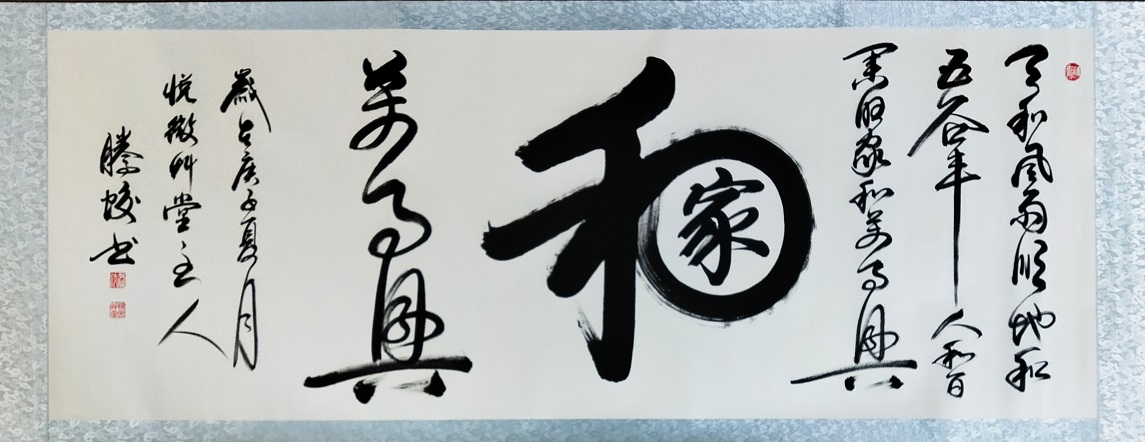 天和風雨順地和
五谷丰人和百
業旺家和萬事興
家和
萬事興
歲在庚子夏月
悦微艸堂主人
滕蛟书